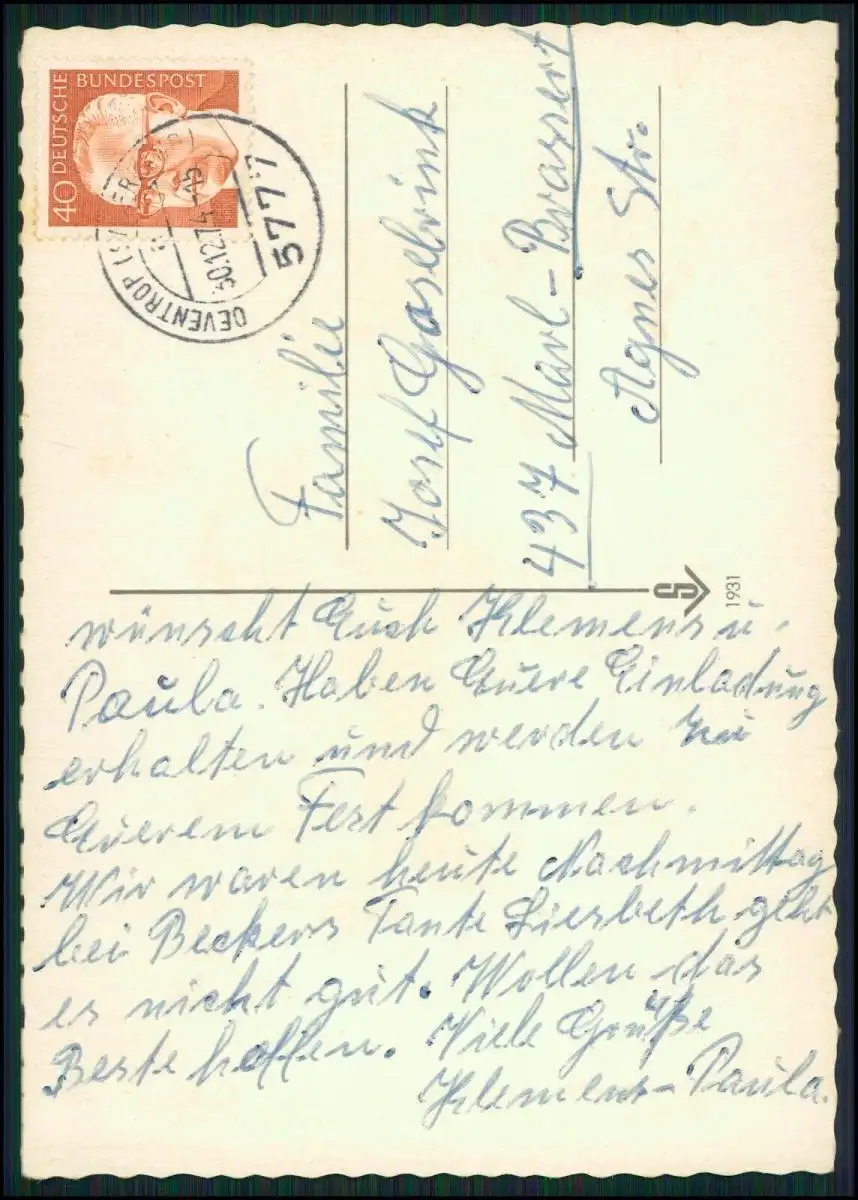 40 DEUTSCHE BUNDESPOST
OEVENTROP
30.12.74-15
5777
Familie
Josef Gosebrink
437 Marl-Brassert
Agnes Str.
1931
wünscht Euch Klemens u.
Paula. Haben Euere Einladung
erhalten und werden zu
Euerem Fest kommen.
Wir waren heute Nachmittag
bei Beckers Tante Liesbeth geht
es nicht gut. Wollen das
Beste hoffen. Viele Grüße
Klemens-Paula.